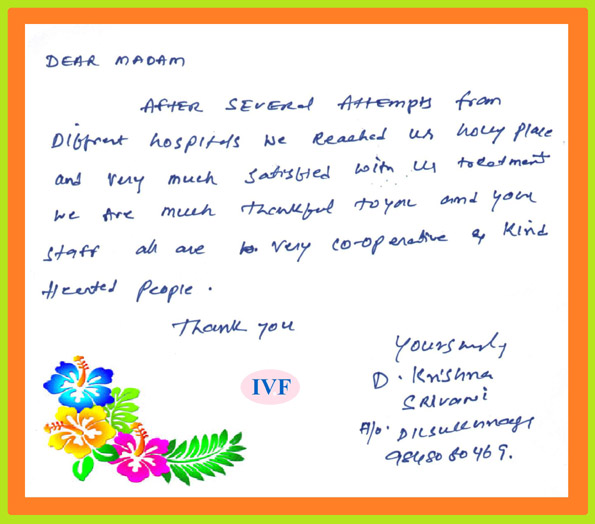 DEAR MADAM
AFTER SEVERAL Attempts from
Different hospitals we Reached us holly place
and very much satisfied with us treatment
we Are much thankful to you and your
staff all are very co-operative & kind
Hearted People.
Thank you
Yours
D. Krishna
SRIVANI
IVF
R/o. DILSUKHNAGR
9848080469.